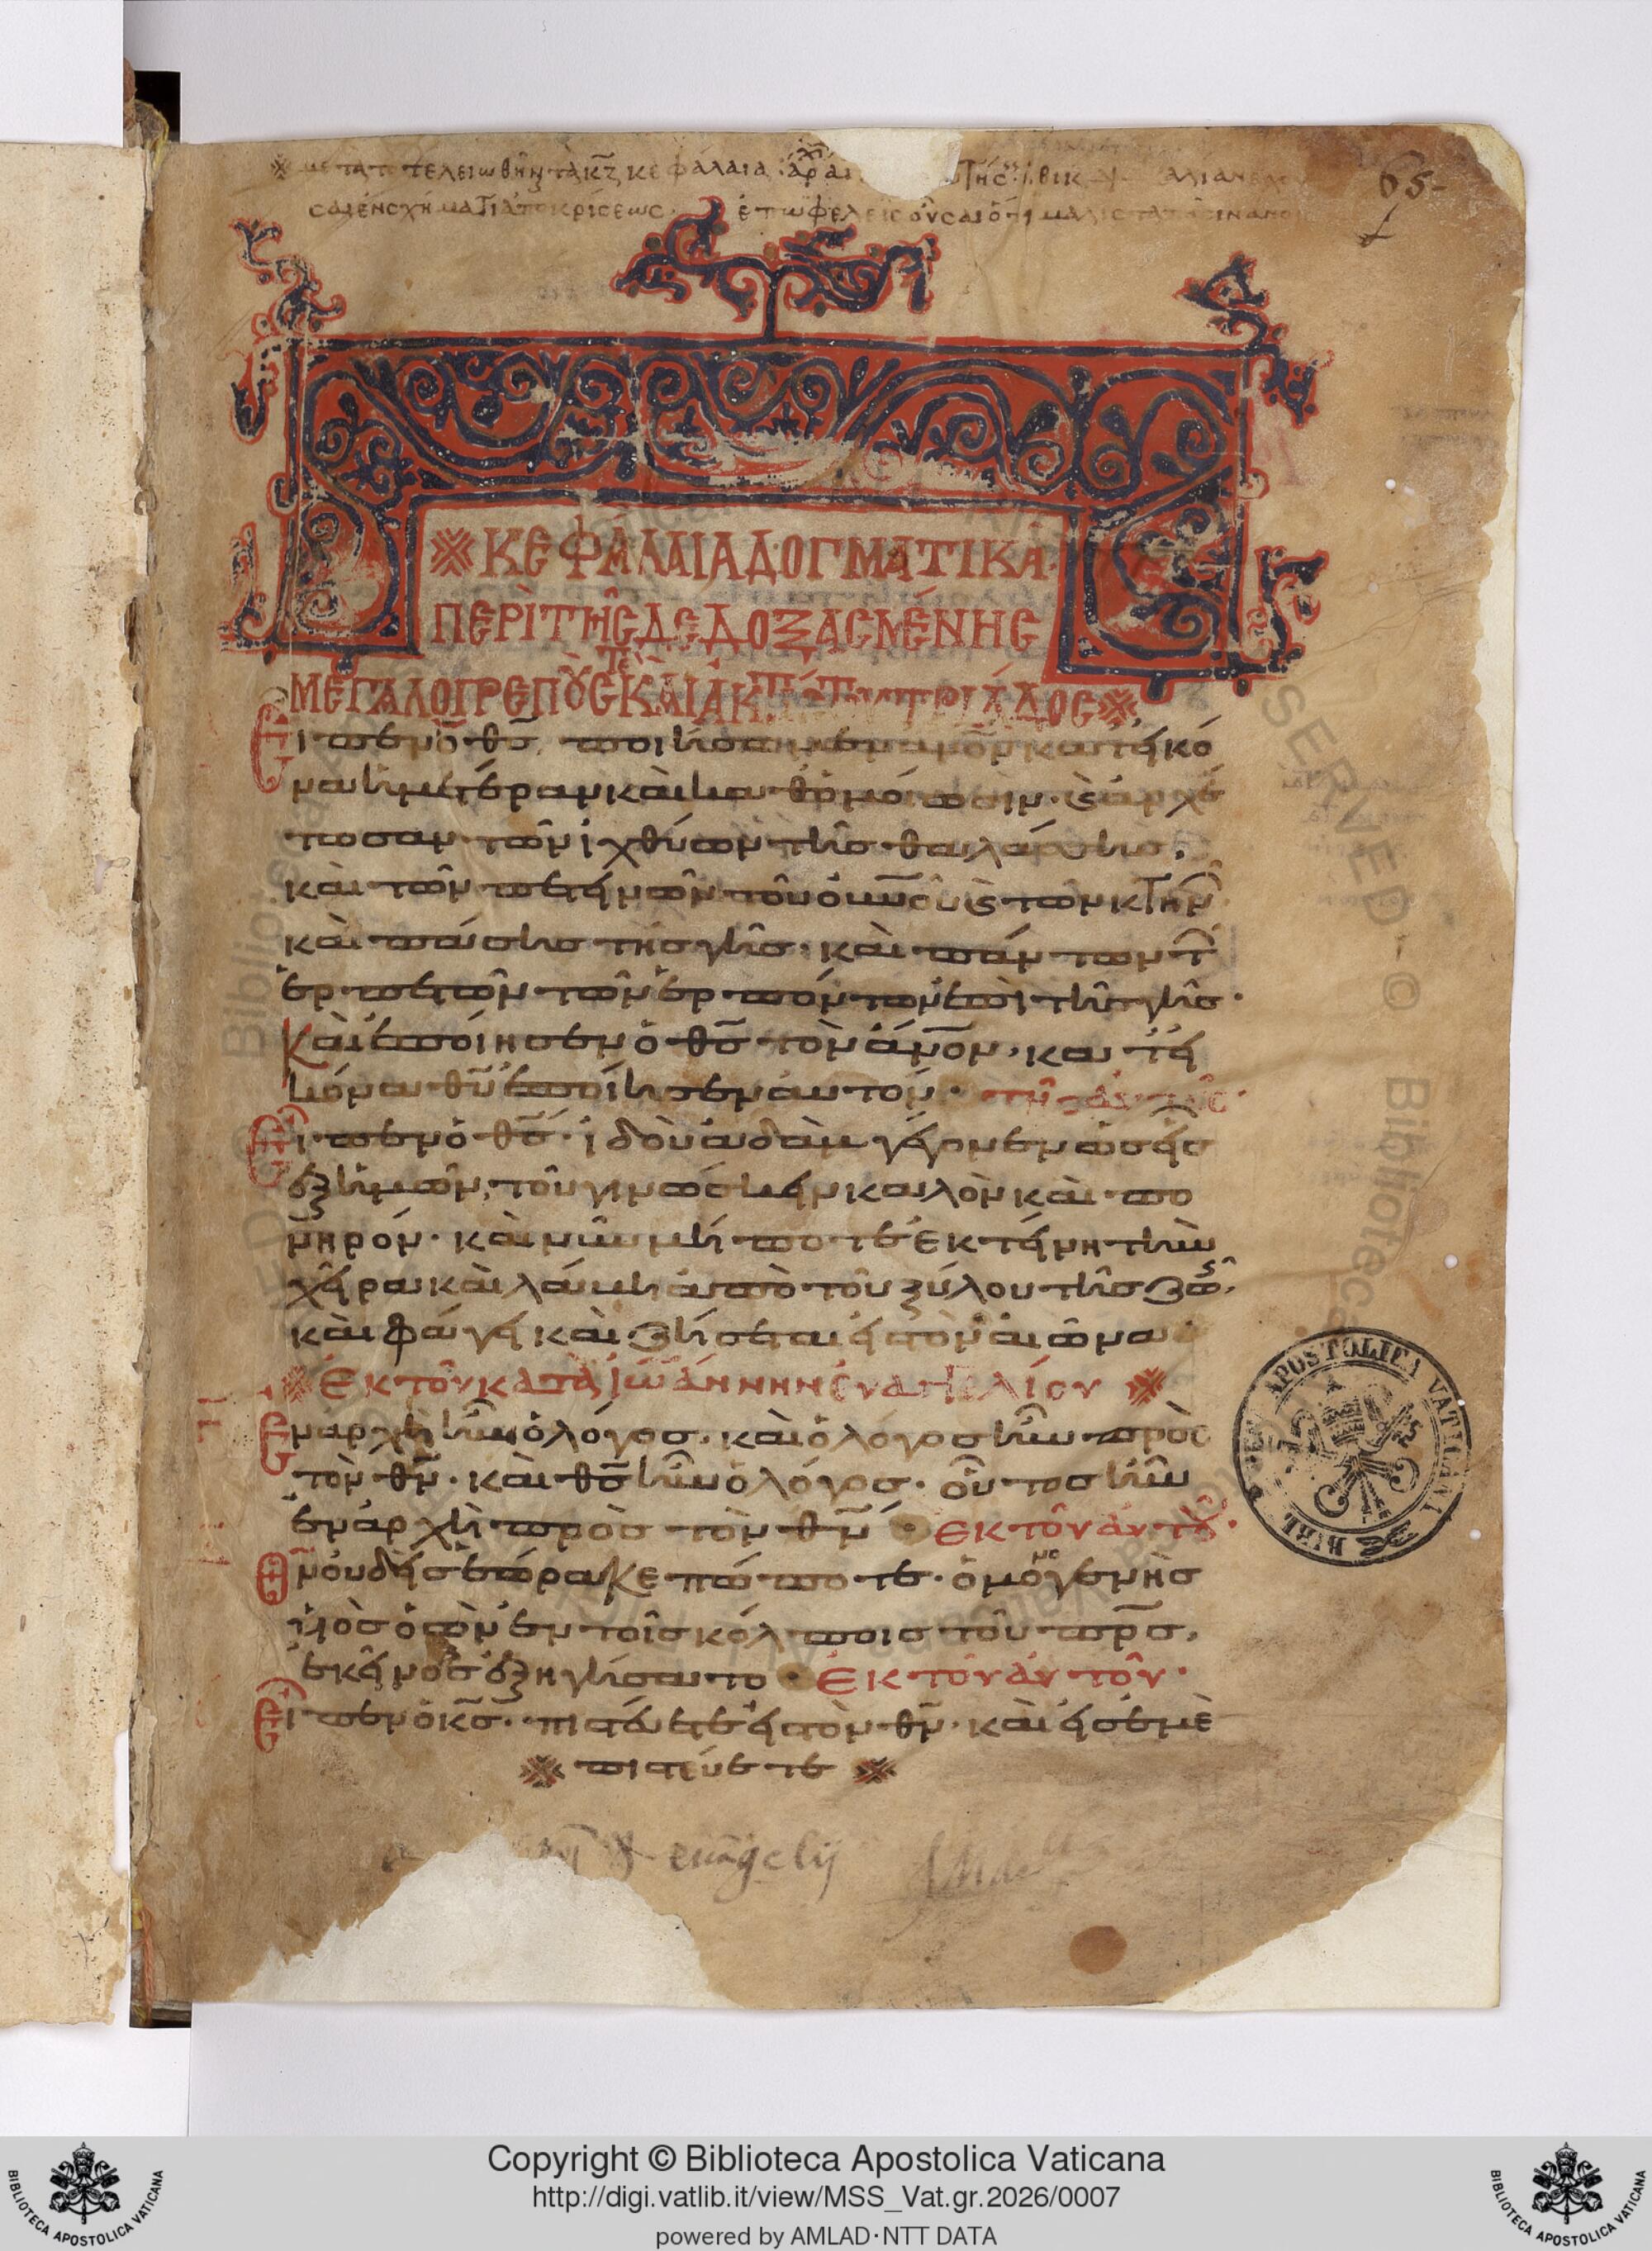 ※ μετα το τελειωθῆν τὰ κζ κεφάλαια
σαι ἐν σχήματι ἀποκρίσεως
65-
1
※ ΚΕΦΆΛΑΙΑ ΔΟΓΜΑΤΙΚΑ·
ΠΕΡῚ ΤΗ͂Σ ΔΕΔΟΞΑΣΜΈΝΗΣ
ΜΕΓΑΛΟΠΡΕΠΟΥ͂Σ ΚΑῚ ΤΡΙΆΔΟΣ ※
Εἶπεν ὁ θς̄, ποιήσωμεν ἄνο̄ν κατ' εἰκό
να ἡμετέραν καὶ καθ' ὁμοίωσιν· καὶ ἀρχέ
τωσαν τῶν ἰχθύων τῆς θαλάσσης,
καὶ τῶν πετηνῶν τοῦ οὐνοῦ καὶ τῶν κτηνῶν
καὶ πάσης τῆς γῆς· καὶ πάντων τῶν
ἑρπετῶν τῶν ἑρπόντων ἐπὶ τῆς γῆς·
Καὶ ἐποίησεν ὁ θς̄ τὸν ἄνο̄ν, κατ' εἰ
κόνα θῡ ἐποίησεν αὐτόν·
Εἶπεν ὁ θς̄· ἰδοὺ ἀδὰμ γέγονεν ὡς εἷς
ἐξ ἡμῶν, τοῦ γινώσκειν καλὸν καὶ πο
νηρόν· καὶ νῦν μή ποτε ἐκτείνη τὴν
χεῖρα καὶ λάβη ἀπὸ τοῦ ξύλου τῆς ζωῆς,
καὶ φάγη καὶ ζήσεται εἰς τὸν αἰῶνα
※ ἘΚ ΤΟΥ͂ ΚΑΤᾺ ἸΩΆΝΝΗΝ ΕΥΑΓΓΕΛΊΟΥ ※
Ἐν ἀρχῆ ἦν ὁ λόγος, καὶ ὁ λόγος ἦν πρὸς
τὸν θν̄· καὶ θς̄ ἦν ὁ λόγος· οὗτος ἦν
ἐν ἀρχῆ πρὸς τὸν θν̄ · ἐκ τοῦ αὐτοῦ·
Θν̄ οὐδεὶς ἑώρακε πώποτε· ὁ μονογενὴς
υἱὸς ὁ ὢν ἐν τοῖς κόλποις τοῦ πρ̄ς,
ἐκεῖνος ἐξηγήσατο · ἐκ τοῦ αὐτοῦ·
Εἶπεν ὁ κς̄· πιστεύετε εἰς τὸν θν̄· καὶ εἰς ἐμὲ
※ πιστεύετε ※
euāgelij
BIBL. APOSTOLICA VATICANA
Copyright © Biblioteca Apostolica Vaticana
http://digi.vatlib.it/view/MSS_Vat.gr.2026/0007
powered by AMLAD·NTT DATA
BIBLIOTECA APOSTOLICA VATICANA
BIBLIOTECA APOSTOLICA VATICANA